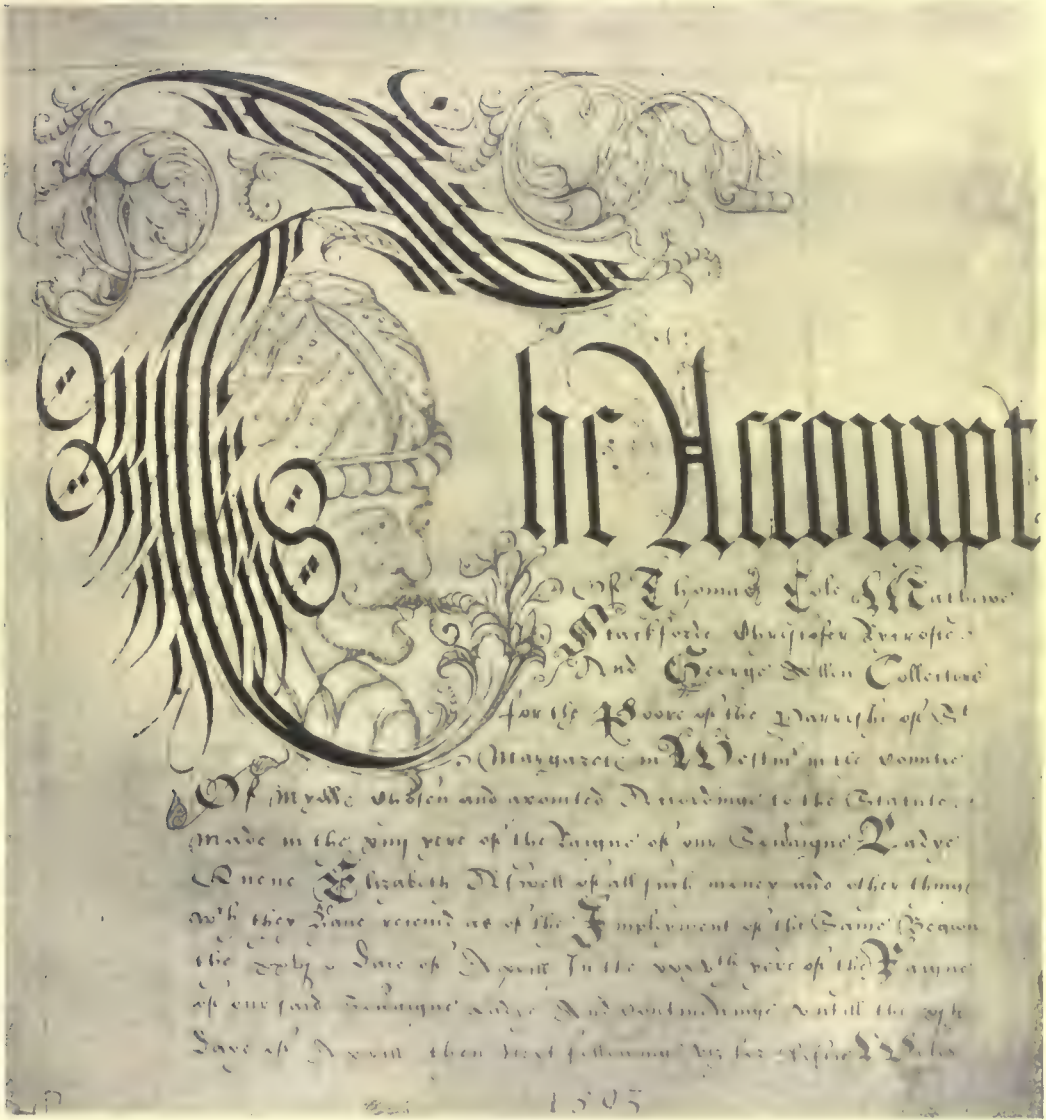 The Accompt
Of Thomas Cole Mathewe
Stackforde Christofer
And George Allen Collectors
for the Poore of the Parrishe of St
Margarete in Westmr in the Countie
Of Midd Chosen and apointed Accordinge to the Statute
Made in the xiiij yere of the Raigne of our Sovraigne Ladye
Quene Elizabeth Aswell of all such money and other things
wch they have receivd as of the Imployment of the Same Begon
the daie of Aprill In the yere of the Raigne
of our said Sovraigne Ladye And Contineinge untill the
Daye of Aprill then next followinge